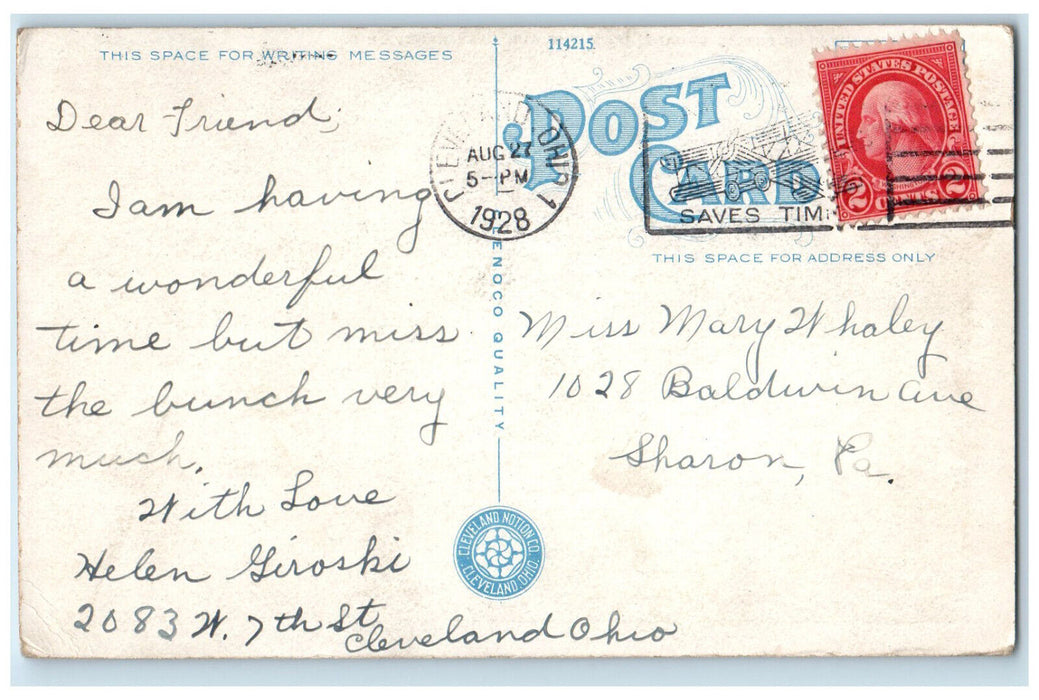 THIS SPACE FOR WRITING MESSAGES
114215.
POST
CARD
THIS SPACE FOR ADDRESS ONLY
CLEVELAND OHIO 1
AUG 27
5-PM
1928
SAVES TIME
UNITED STATES POSTAGE
WASHINGTON
2 CENTS 2
Dear Friend;
I am having
a wonderful
time but miss
the bunch very
much.
With Love
Helen Giroski
2083 W. 7th St
Cleveland Ohio
LENOCO QUALITY
CLEVELAND NOTION CO.
CLEVELAND, OHIO.
Miss Mary Whaley
1028 Baldwin Ave
Sharon, Pa.